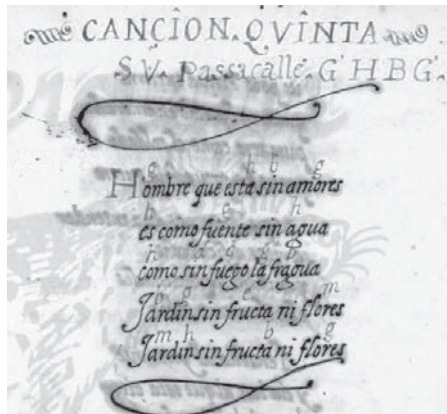 CANCIÓN. QVINTA
SV. Passacalle. G H B G.
g h b g
Hombre que esta sin amores
h g h
es como fuente sin agua
h g b
como sin fuego la fragua
b g e m
Jardin sin fructa ni flores
m h b g
Jardin sin fructa ni flores